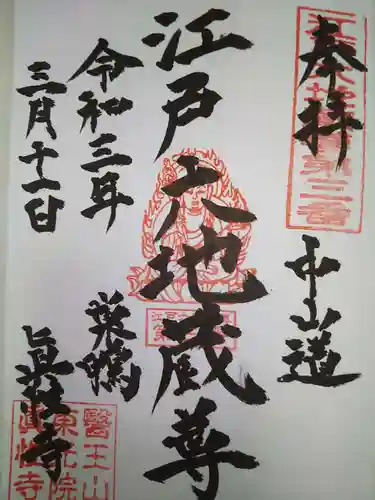 奉拝
中山道
江戸六地蔵尊
令和三年
巣鴨
三月十一日
眞性寺
醫王山
東光院
眞性寺